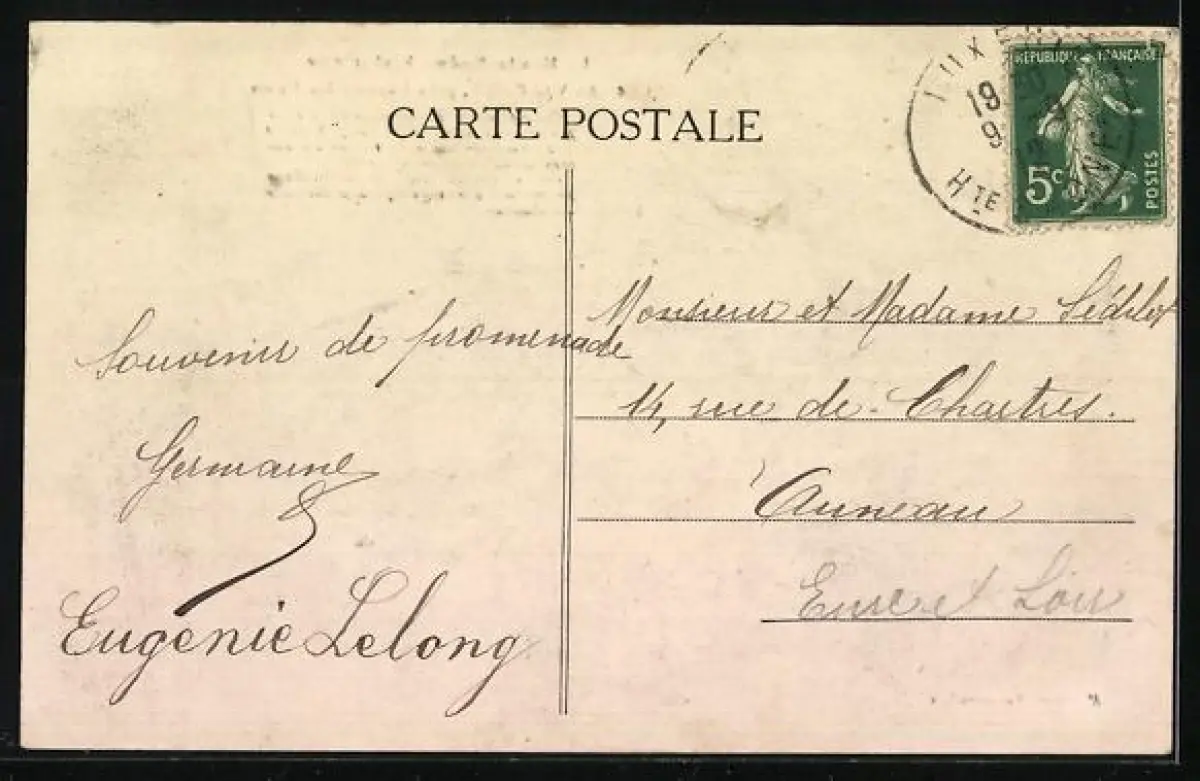 CARTE POSTALE
RÉPUBLIQUE FRANÇAISE
5c
POSTES
19
9
Hte
Souvenir de promenade
Germaine
Eugénie Lelong
Monsieur et Madame Sédilot
14, rue de Chartres.
Auneau
Eure et Loir